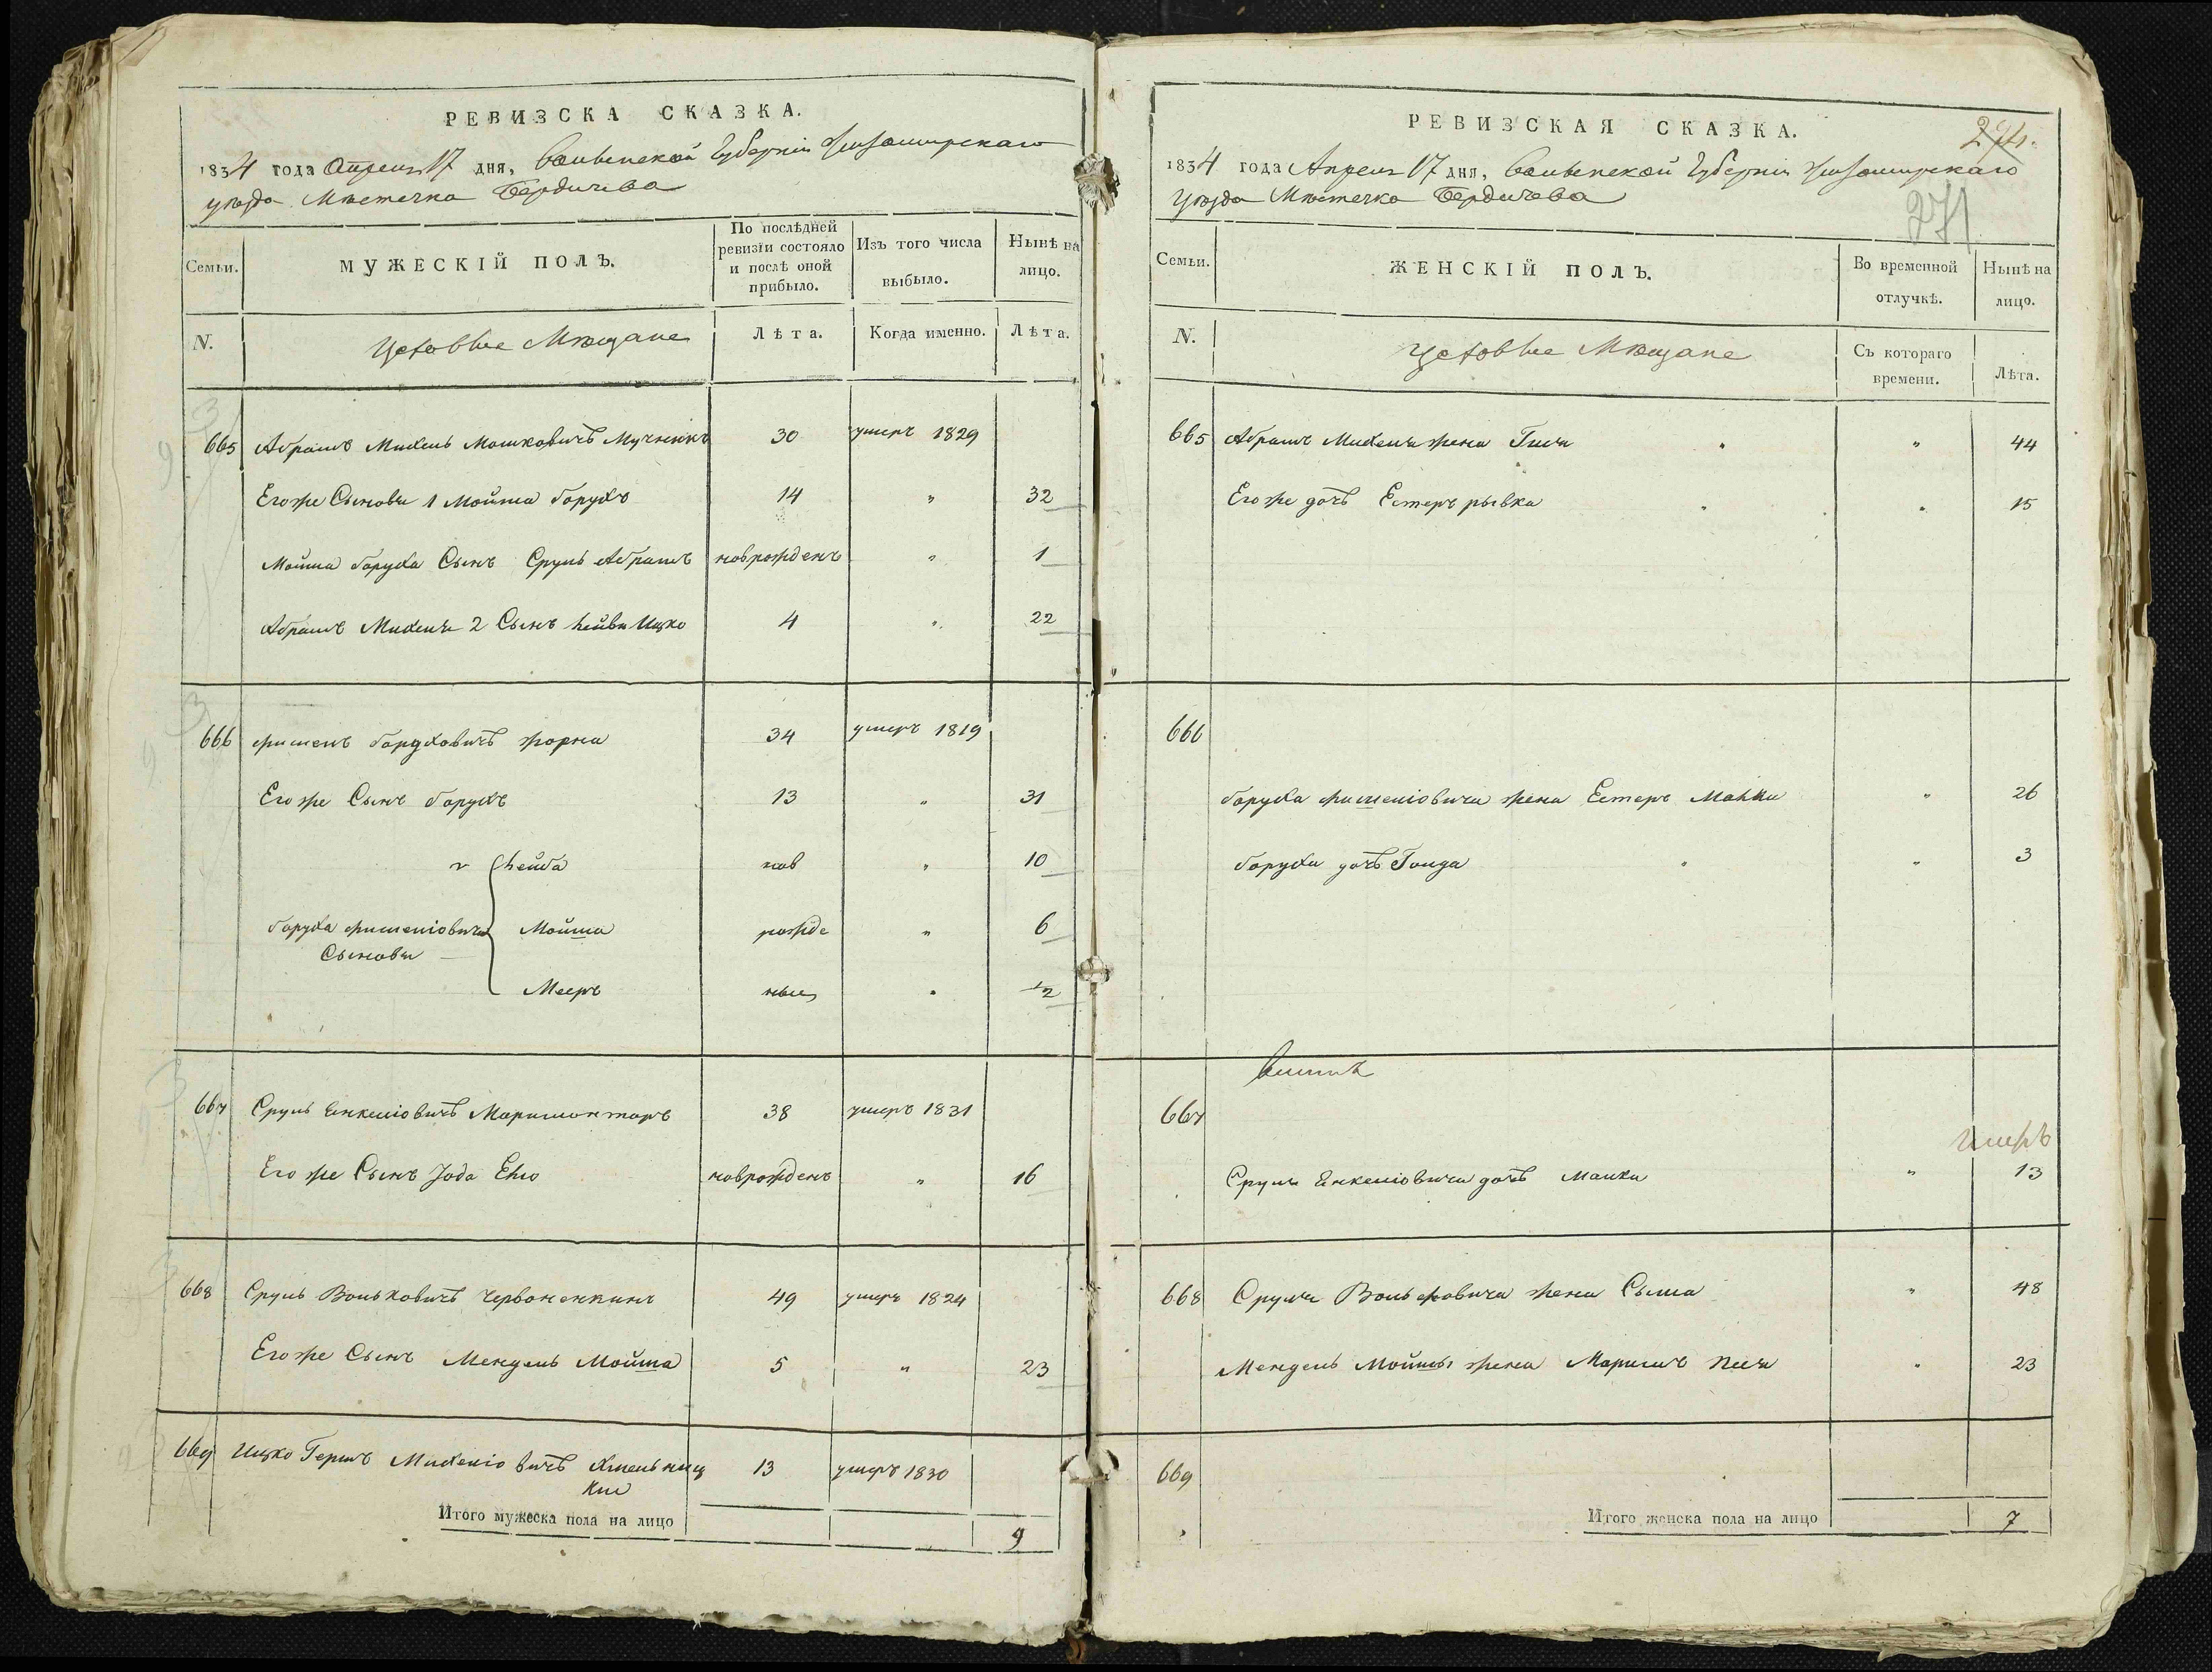 РЕВИЗСКА СКАЗКА.
1834 года Апреля 17 дня, Волынской Губернiи Житомирскаго
уѣзда Мѣстечка Бердичева
Семьи.
МУЖЕСКІЙ ПОЛЪ.
По послѣдней ревизіи состояло и послѣ оной прибыло.
Изъ того числа выбыло.
Нынѣ на лицо.
N.
Цеховые Мѣщане
Лѣта.
Когда именно.
Лѣта.
665 Абрамъ Михель Мошковичъ Мучникъ 30 умеръ 1829
Его же Сыновья 1 Мойша Борухъ 14 " 32
Мойша Боруха Сынъ Сруль Абрамъ новрожденъ " 1
Абрамъ Михеля 2 Сынъ Лейви Ицко 4 " 22
666 Фишель Борухович Жорна 34 умеръ 1819
Его же Сынъ Борухъ 13 " 31
Лейба нов " 10
Боруха Фишеліовича Мойша рожде " 6
Сыновья
Мееръ ные " 1/2
667 Сруль Янкеліовичъ 38 умеръ 1831
Его же Сынъ новрожденъ " 16
668 Сруль Вольковичъ Червоненкинъ 49 умеръ 1824
Его же Сынъ Мендель Мойша 5 " 23
669 Ицко Гершъ Михеліовичъ Хмельниц 13 умеръ 1830
кий
Итого мужеска пола на лицо 9
РЕВИЗСКАЯ СКАЗКА.
271
1834 года Апреля 17 дня, Волынской Губерніи Житомирскаго
уѣзда Мѣстечка Бердичева
Семьи.
ЖЕНСКІЙ ПОЛЪ.
Во временной отлучкѣ.
Нынѣ на лицо.
N.
Цеховые Мѣщане
Съ котораго времени.
Лѣта.
665 Абрамъ Михеля жена Гися " 44
Его же дочь Естеръ рывка " 15
666
Боруха Фишеліовича жена Естеръ " 26
Боруха дочь Голда " 3
667
умеръ
Сруля Янкеліовича дочь Малка " 13
668 Сруля Вольковича жена Сыма " 48
Мендель Мойшы жена " 23
669
Итого женска пола на лицо 7